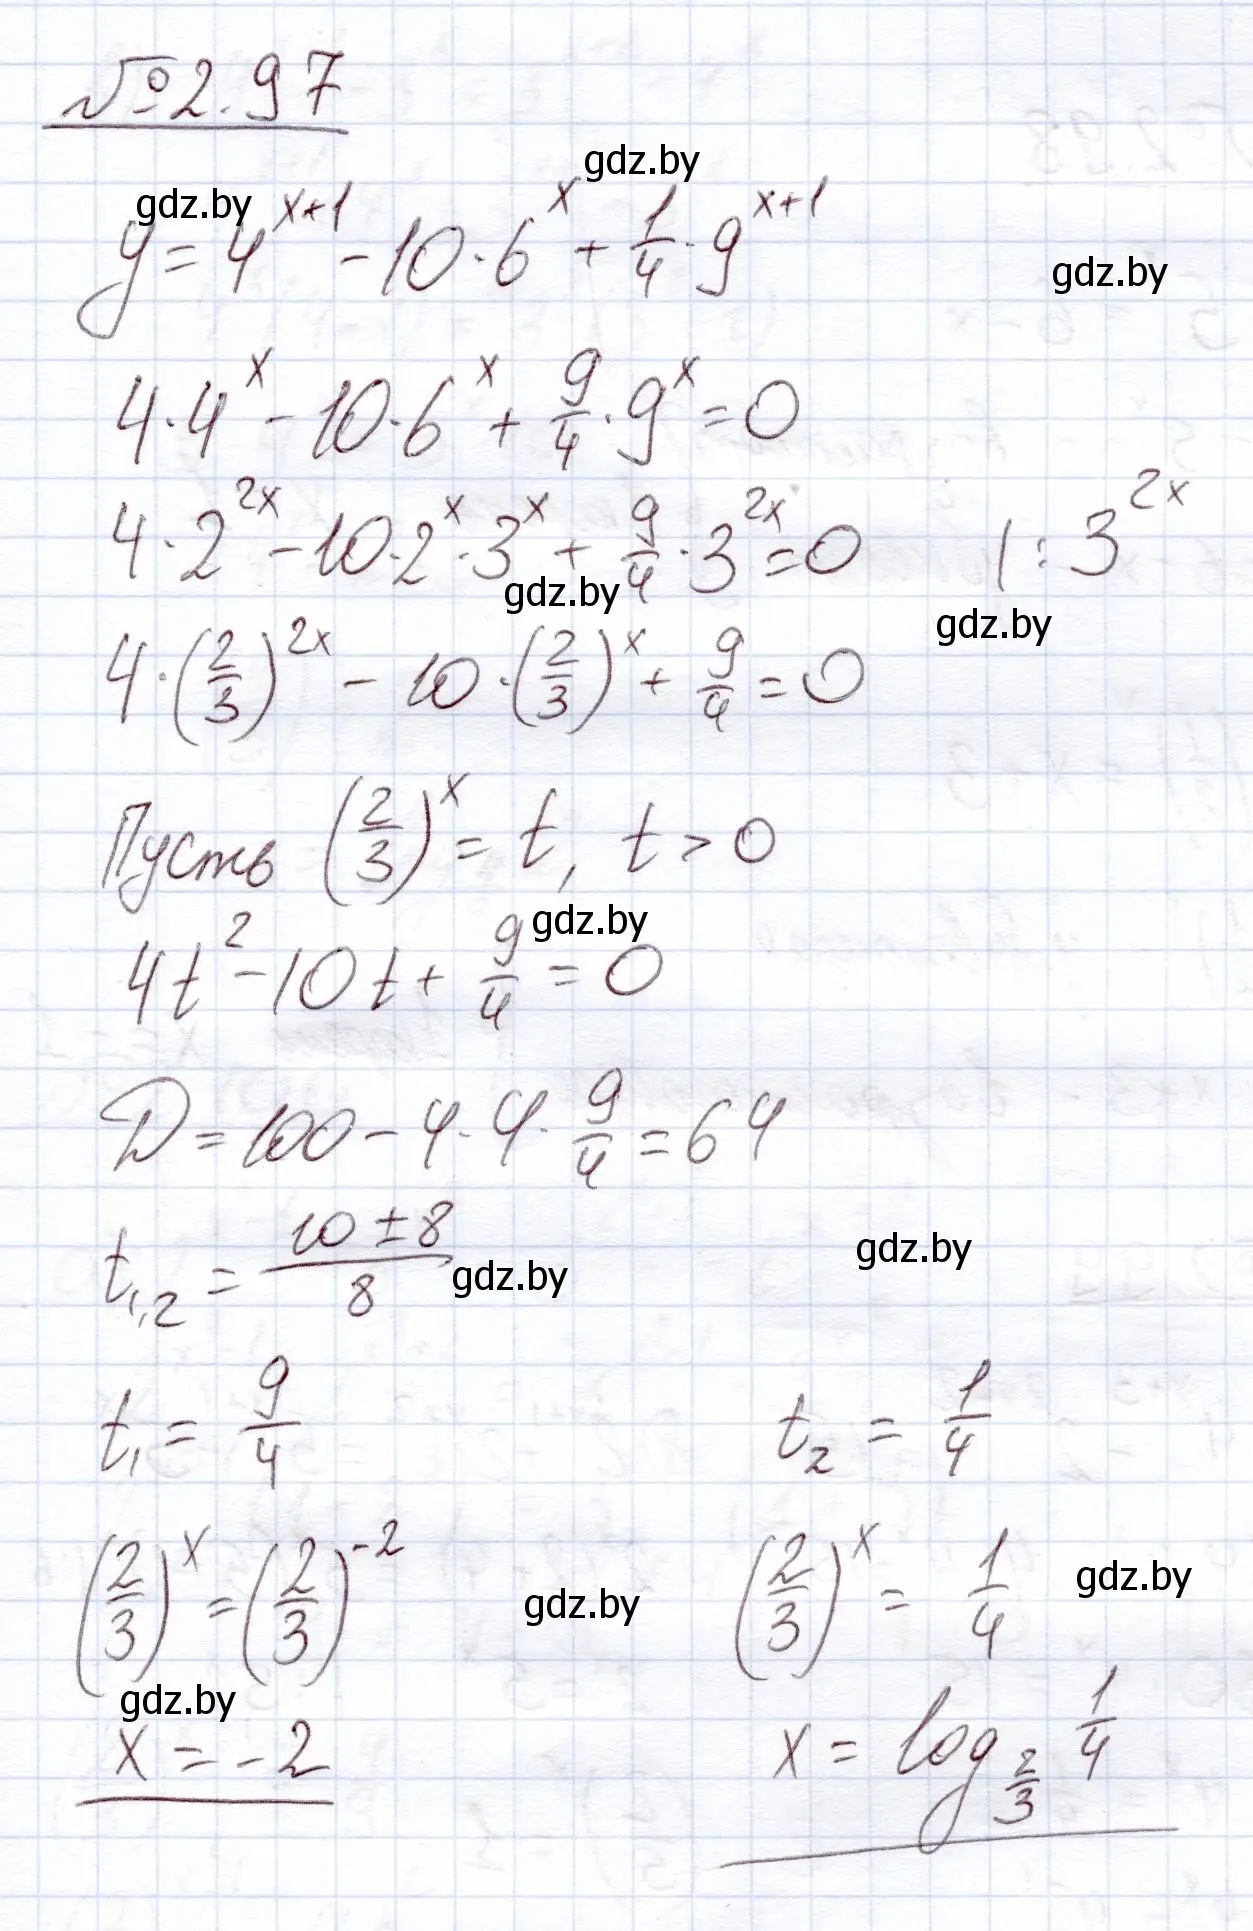 №2.97
gdz.by
gdz.by
y = 4^(x+1) - 10·6^x + 1/4·9^(x+1)
gdz.by
4·4^x - 10·6^x + 9/4·9^x = 0
4·2^(2x) - 10·2^x·3^x + 9/4·3^(2x) = 0 | : 3^(2x)
gdz.by
gdz.by
4·(2/3)^(2x) - 10·(2/3)^x + 9/4 = 0
Пусть (2/3)^x = t, t > 0
gdz.by
4t² - 10t + 9/4 = 0
D = 100 - 4·4·9/4 = 64
t₁,₂ = (10 ± 8)/8
gdz.by
gdz.by
t₁ = 9/4 t₂ = 1/4
(2/3)^x = (2/3)^(-2) (2/3)^x = 1/4
gdz.by
gdz.by
gdz.by
x = -2 x = log_(2/3) 1/4